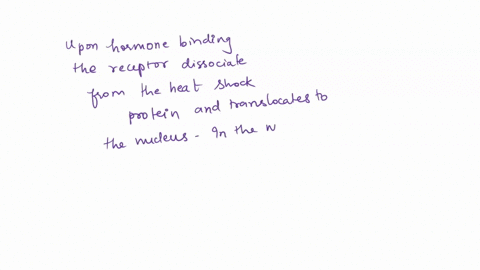 Upon hormone binding
the receptor dissociate
from the heat shock
protein and translocates to
the nucleus - In the n